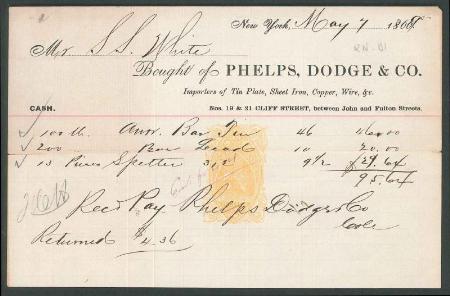 New York, May 7 186
Mr S S. White
RN-B1
Bought of PHELPS, DODGE & CO.
Importers of Tin Plate, Sheet Iron, Copper, Wire, &c.
CASH. Nos. 19 & 21 CLIFF STREET, between John and Fulton Streets.
100 lb Bar Tin 46 46.00
200 Lead 10 20.00
13 Spelter 312 9 1/2 29.64
95.64
Rec'd Pay Phelps Dodge & Co
Returned $4.36